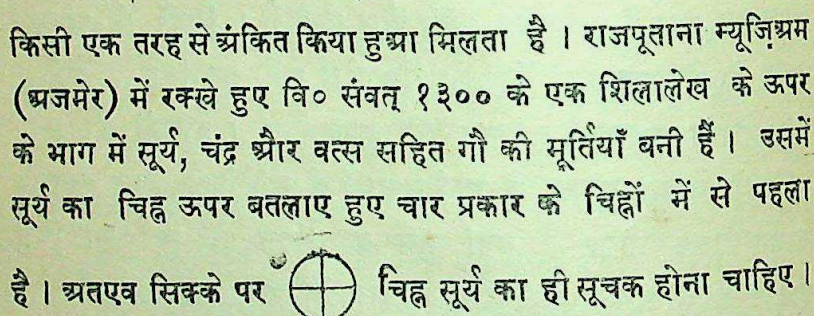 किसी एक तरह से अंकित किया हुआ मिलता है । राजपूताना म्यूज़िअम
(अजमेर) में रक्खे हुए वि० संवत् १३०० के एक शिलालेख के ऊपर
के भाग में सूर्य, चंद्र और वत्स सहित गौ की मूर्तियाँ बनी हैं । उसमें
सूर्य का चिह्न ऊपर बतलाए हुए चार प्रकार के चिह्नों में से पहला
है । अतएव सिक्के पर चिह्न सूर्य का ही सूचक होना चाहिए ।